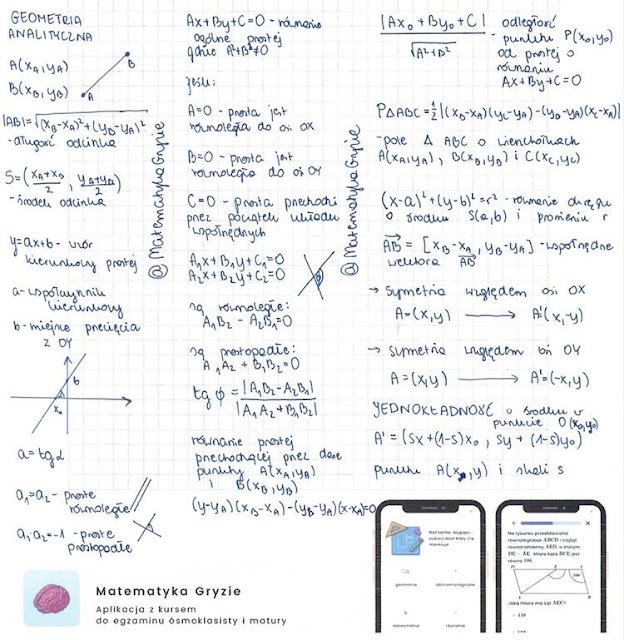 GEOMETRIA
ANALITYCZNA
A(x_A, y_A)
B(x_B, y_B)
A
B
|AB| = √((x_B-x_A)²+(y_B-y_A)²)
-długość odcinka
S=((x_A+x_B)/2, (y_A+y_B)/2)
-środek odcinka
y=ax+b - wzór
kierunkowy prostej
a-współczynnik
kierunkowy
b-miejsce przecięcia
z OY
b
x₀
a=tgα
a₁=a₂ - proste
równoległe
a₁·a₂=-1 - proste
prostopadłe
@MatematykaGryzie
Ax+By+C=0 - równanie
ogólne prostej
gdzie A²+B²≠0
jeśli:
A=0 - prosta jest
równoległa do osi OX
B=0 - prosta jest
równoległa do osi OY
C=0 - prosta przechodzi
przez początek układu
współrzędnych
A₁x+B₁y+C₁=0
A₂x+B₂y+C₂=0
są równoległe:
A₁B₂-A₂B₁=0
są prostopadłe:
A₁A₂+B₁B₂=0
tg ϕ = |A₁B₂-A₂B₁| / |A₁A₂+B₁B₂|
równanie prostej
przechodzącej przez dane
punkty A(x_A, y_A)
i B(x_B, y_B)
(y-y_A)(x_B-x_A)-(y_B-y_A)(x-x_A)=0
@MatematykaGryzie
|Ax₀+By₀+C| / √(A²+B²) - odległość
punktu P(x₀,y₀)
od prostej o
równaniu
Ax+By+C=0
P∆ABC=½|(x_B-x_A)(y_C-y_A)-(y_B-y_A)(x_C-x_A)|
-pole ∆ ABC o wierzchołkach
A(x_A, y_A), B(x_B, y_B) i C(x_C, y_C)
(x-a)²+(y-b)²=r² - równanie okręgu
o środku S(a,b) i promieniu r
AB→ = [x_B-x_A, y_B-y_A] -współrzędne
wektora AB→
→ symetria względem osi OX
A=(x,y) → A'(x,-y)
→ symetria względem osi OY
A=(x,y) → A'=(-x,y)
JEDNOKŁADNOŚĆ o środku w
punkcie O(x₀,y₀)
A' = (sx+(1-s)x₀, sy+(1-s)y₀)
punktu A(x,y) i skali s
Matematyka Gryzie
Aplikacja z kursem
do egzaminu ósmoklasisty i matury
geometria
równania
Na rysunku przedstawiono
równoległobok ABCD i trójkąt
równoramienny AED, w którym
DE = AE. Miara kąta BCE jest
równa 108.
Jaką miarę ma kąt AEC?